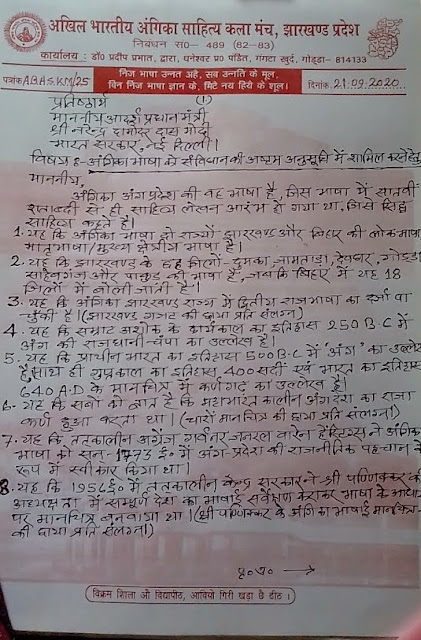 अखिल भारतीय अंगिका साहित्य कला मंच, झारखण्ड प्रदेश
निबंधन स०- 489 (82-83)
कार्यालय : डॉ० प्रदीप प्रभात, द्वारा, धनेश्वर प्र० पंडित, गंगटा खुर्द, गोड्डा- 814133
निज भाषा उन्नत अहे, सब उन्नति के मूल,
बिन निज भाषा ज्ञान के, मिटे नय हिये के शूल।
पत्रांक A.B.A.S.K.M/25
दिनांक 21.09.2020
(1)
प्रतिष्ठार्थ
माननीय आदर्श प्रधान मंत्री
श्री नरेन्द्र दामोदर दास मोदी
भारत सरकार, नई दिल्ली।
विषय :- अंगिका भाषा को संविधान की अष्टम अनुसूची में शामिल करने हेतु
माननीय,
अंगिका अंग प्रदेश की वह भाषा है, जिस भाषा में सातवीं
शताब्दी से ही साहित्य लेखन आरंभ हो गया था, जिसे सिद्ध
साहित्य कहते हैं।
1. यह कि अंगिका भाषा दो राज्यों झारखण्ड और बिहार की लोकभाषा
मातृभाषा/मुख्य क्षेत्रीय भाषा है।
2. यह कि झारखण्ड के छह जिलों- दुमका, जामताड़ा, देवघर, गोड्डा,
साहेबगंज और पाकुड़ की भाषा है, जबकि बिहार में यह 18
जिलों में बोली जाती है।
3. यह कि अंगिका झारखण्ड राज्य में द्वितीय राजभाषा का दर्जा पा
चुकी है। (झारखण्ड गजट की छाया प्रति संलग्न)
4. यह कि सम्राट अशोक के कार्यकाल का इतिहास 250 B.C में
अंग की राजधानी चंपा का उल्लेख है।
5. यह कि प्राचीन भारत का इतिहास 500 B.C में 'अंग' का उल्लेख
है, साथ ही गुप्तकाल का इतिहास, 400 सदी एवं भारत का इतिहास
640 A.D के मानचित्र में कर्णगढ़ का उल्लेख है।
6. यह कि सबों को ज्ञात है कि महाभारत कालीन अंगदेश का राजा
कर्ण हुआ करता था। (चारों मानचित्र की छाया प्रति संलग्न।)
7. यह कि तत्कालीन अंग्रेज गवर्नर जनरल वारेन हेस्टिंग्स ने अंगिका
भाषा को सन-1773 ई० में अंग-प्रदेश की राजनीतिक पहचान के
रूप में स्वीकार किया था।
8. यह कि 1956 ई० में तत्कालीन केन्द्र सरकार ने श्री पणिक्कर की
अध्यक्षता में सम्पूर्ण देश का भाषाई सर्वेक्षण कराकर भाषा के आधार
पर मानचित्र बनवाया था। (श्री पणिक्कर के अंगिका भाषाई मानचित्र
की छाया प्रति संलग्न।)
पृ०उ० →
विक्रम शिला ओ विद्यापीठ, आवियो गिरी खड़ा छै ढीठ।